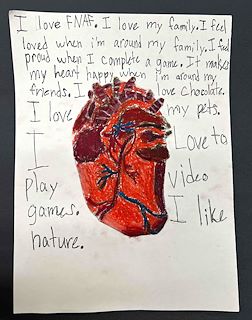 I love FNAF. I love my family. I feel
loved when i'm around my family. I feel
proud when I complete a game. It makes
my heart happy when i'm around my
friends. I love chocolate.
I love my pets.
I Love to
play video
games. I like
nature.